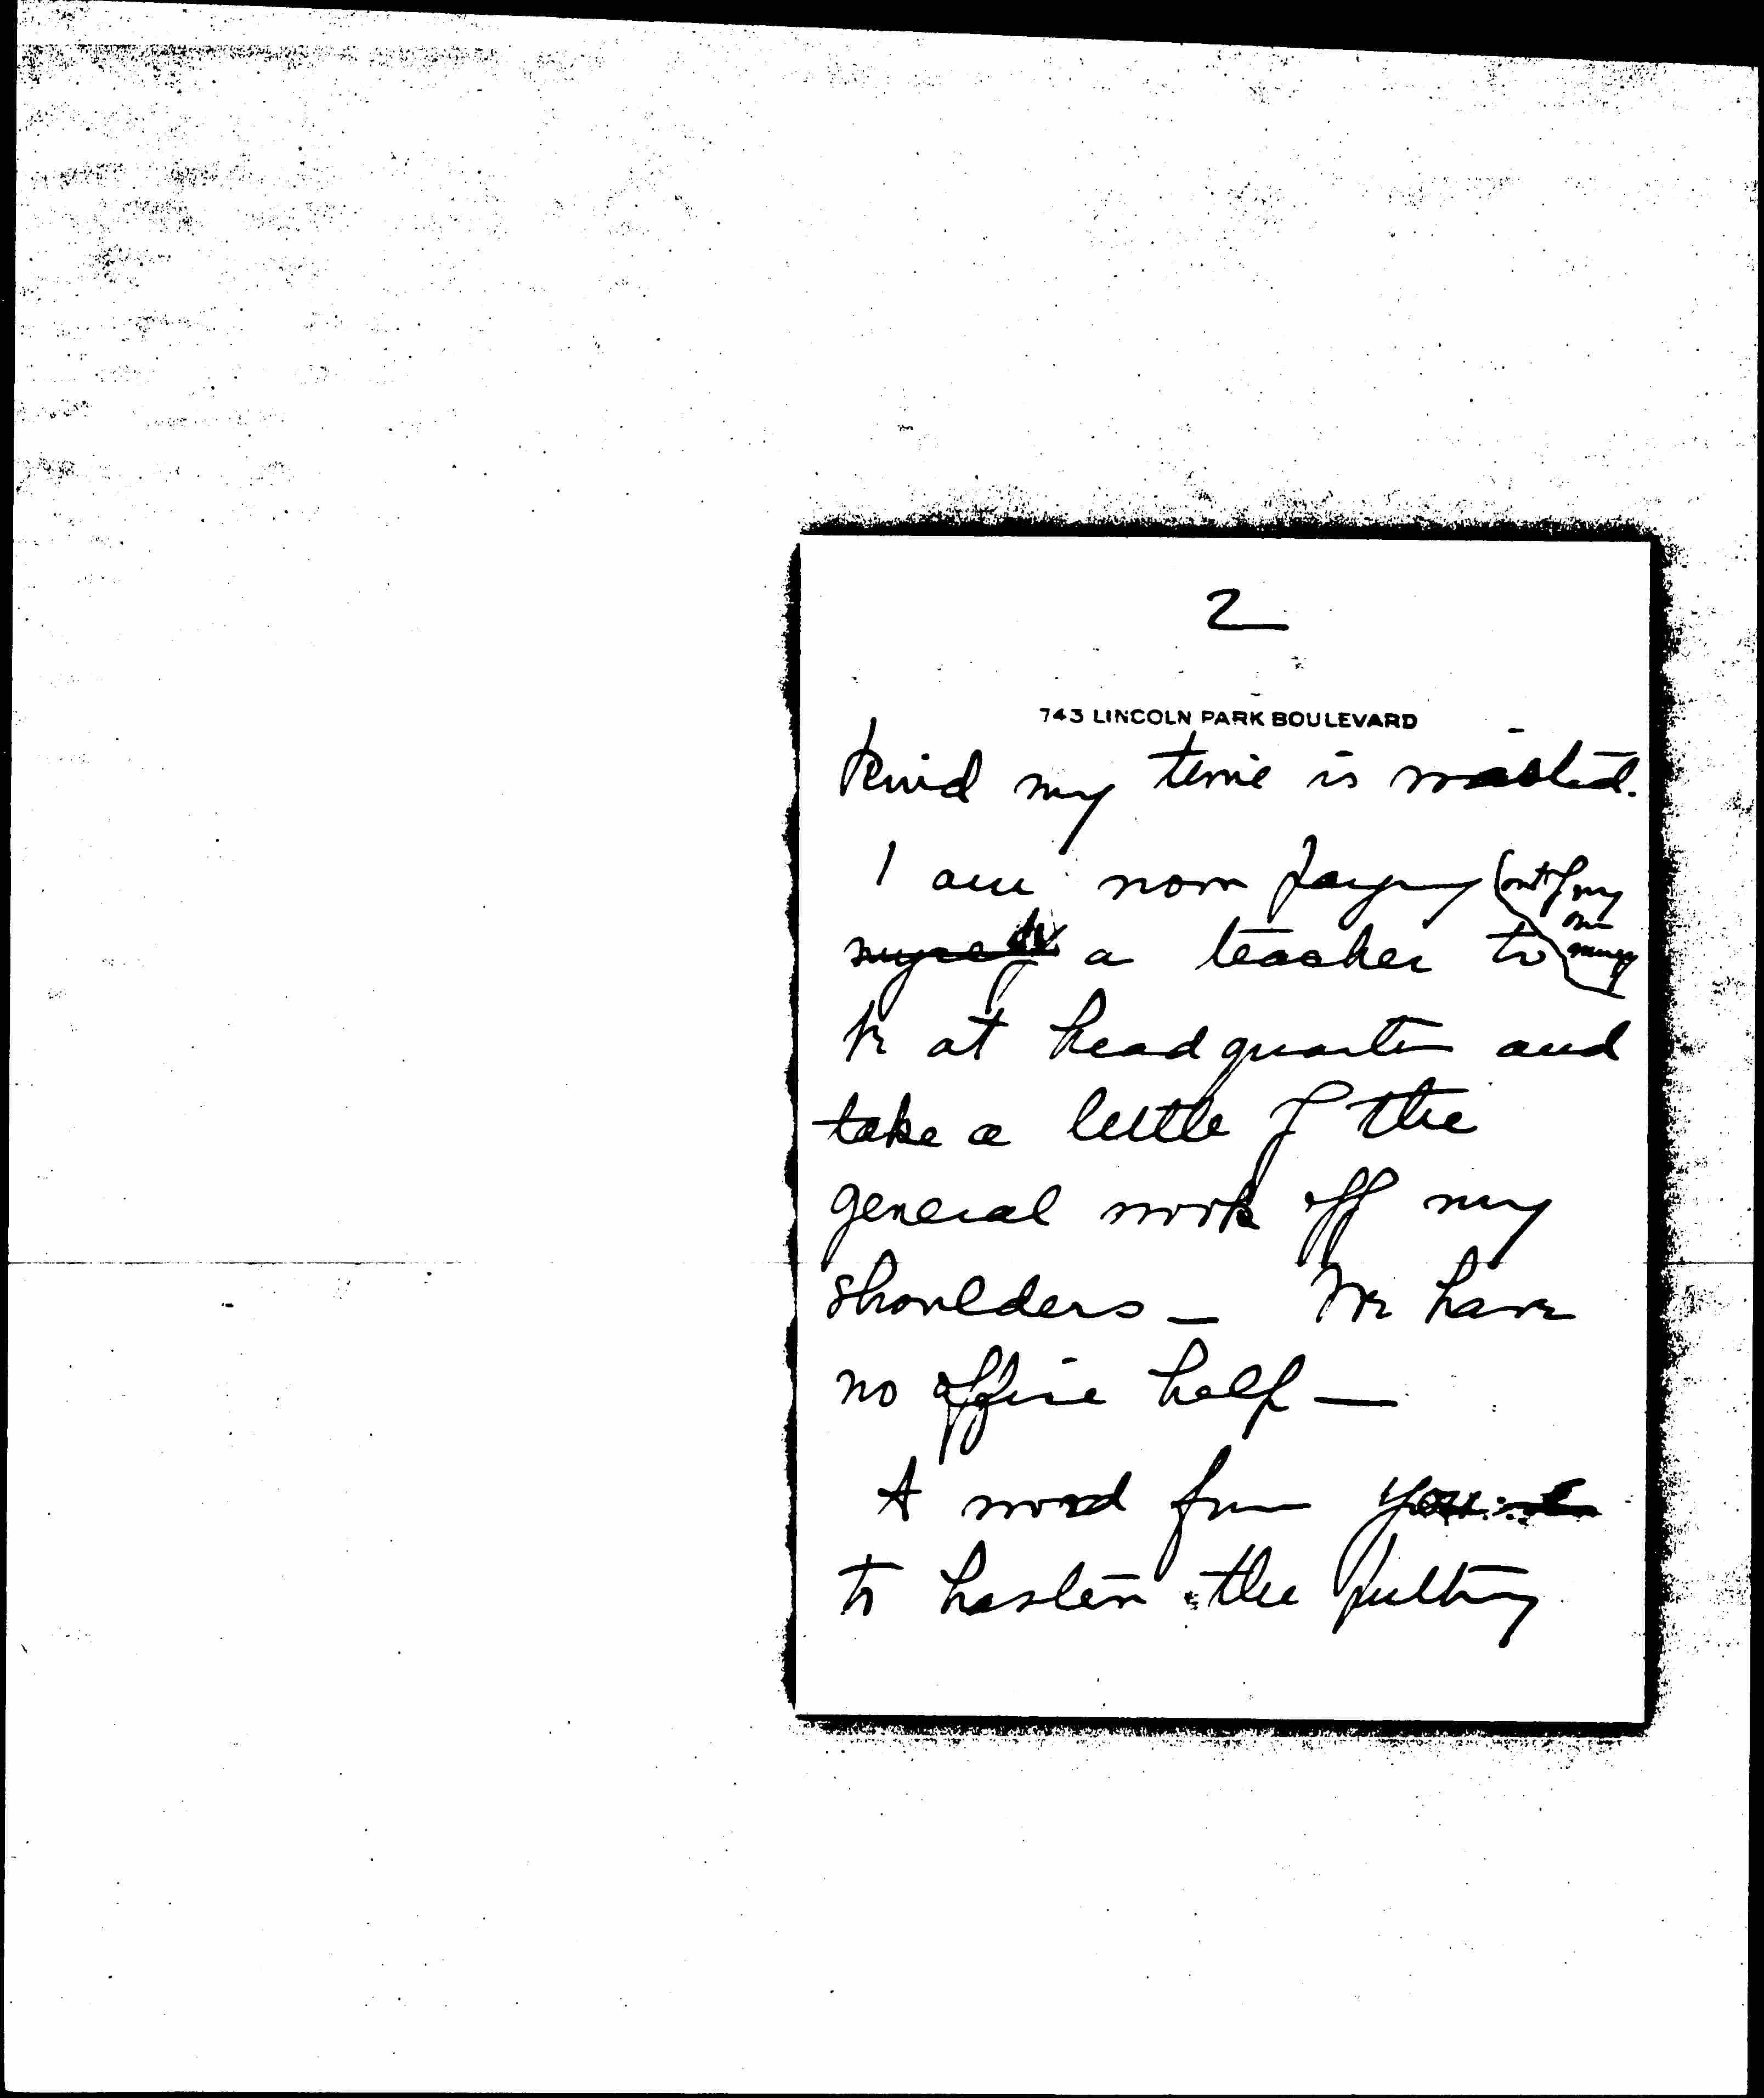 2
743 LINCOLN PARK BOULEVARD
kind my time is wasted.
I am now paying (out of my
own
myself a teacher to money)
be at headquarters and
take a little of the
general work off my
shoulders — We have
no office help —
A word from you
to hasten the putting